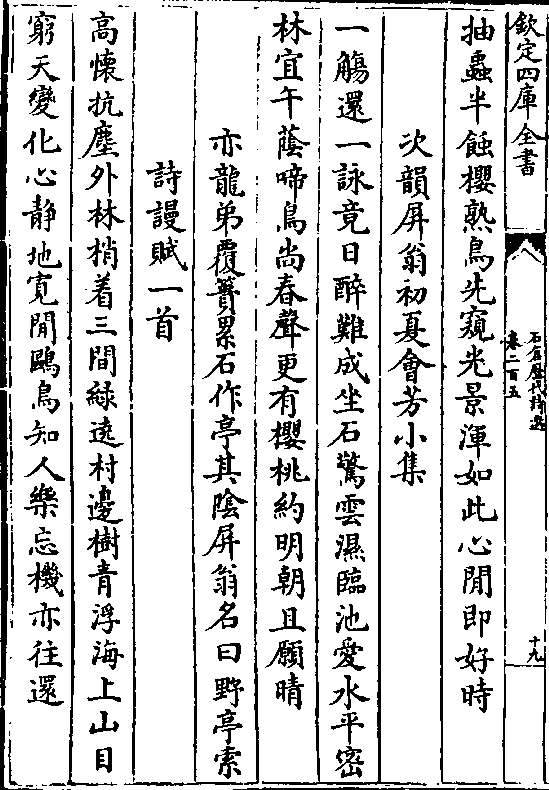 欽定四庫全書
石倉歷代詩選
卷二百五
十九
抽蟲半蝕櫻熟鳥先窺光景渾如此心閒即好時
次韻屏翁初夏會芳小集
一觴還一詠竟日醉難成坐石驚雲濕臨池愛水平密
林宜午蔭啼鳥尚春聲更有櫻桃約明朝且願晴
亦龍弟覆蕢累石作亭其陰屏翁名曰野亭索
詩謾賦一首
高懷抗塵外林梢着三間緑遶村邊樹青浮海上山目
窮天變化心静地寛閒鷗鳥知人樂忘機亦往還